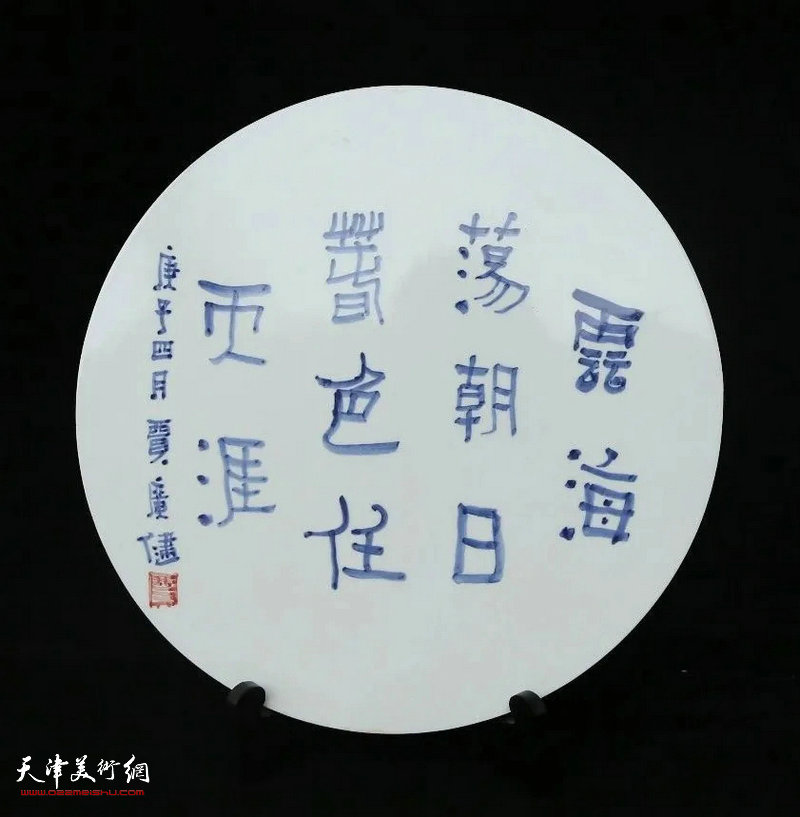 雲海
蕩朝日
萅色任
天涯
庚子四月 賈廣健
天津美術網
www.022meishu.com